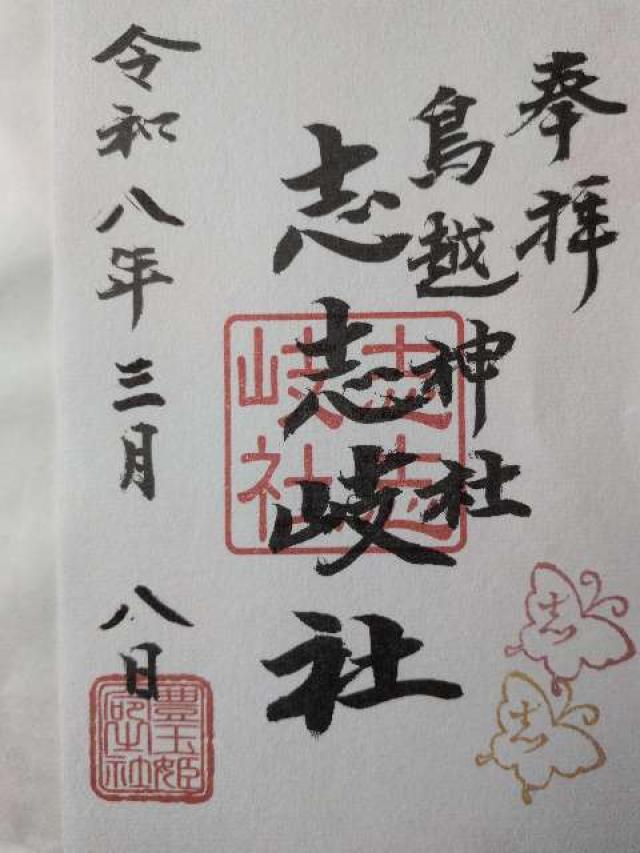 奉拝
鳥越神社
志志岐社
志志
岐社
令和八年三月八日
豊玉姫
神社
志
志